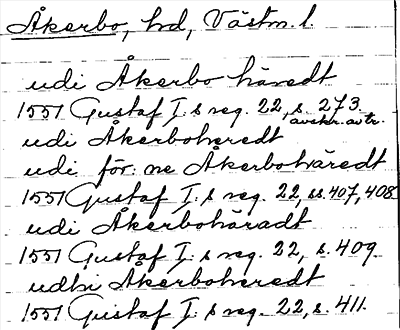 Åkerbo, hd, Västm. l.
udi Åkerbo häredt
1551 Gustaf I:s reg. 22, s. 273.
avskr. avtr.
udi Åkerboheredt
udi för:ne Åkerbohäredt
1551 Gustaf I:s reg. 22, ss. 407, 408
udi Åkerbohäradt
1551 Gustaf I:s reg. 22, s. 409
udhi Åkerboheredt
1551 Gustaf I:s reg. 22, s. 411.